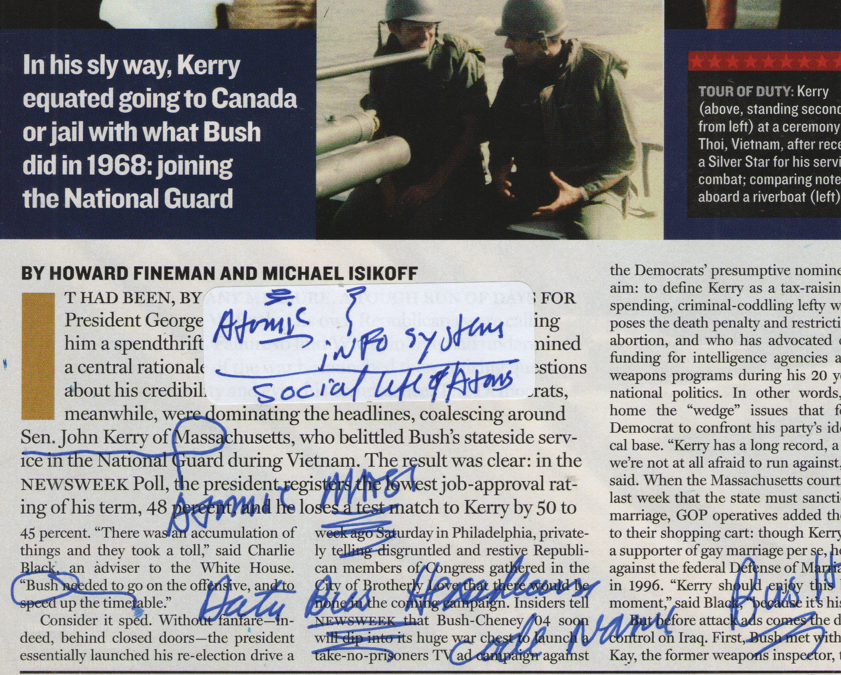 In his sly way, Kerry
equated going to Canada
or jail with what Bush
did in 1968: joining
the National Guard
TOUR OF DUTY: Kerry
(above, standing second
from left) at a ceremony
Thoi, Vietnam, after rece
a Silver Star for his servi
combat; comparing note
aboard a riverboat (left)
BY HOWARD FINEMAN AND MICHAEL ISIKOFF
IT HAD BEEN, BY ANY MEASURE, A TOUGH RUN OF DAYS FOR
President George
him a spendthrift
a central rationale
about his credibil
meanwhile, were dominating the headlines, coalescing around
Sen. John Kerry of Massachusetts, who belittled Bush's stateside serv-
ice in the National Guard during Vietnam. The result was clear: in the
NEWSWEEK Poll, the president registers the lowest job-approval rat-
ing of his term, 48 percent, and he loses a test match to Kerry by 50 to
Atomic
info systems
Social life of Atoms
Atomic
45 percent. "There was an accumulation of
things and they took a toll," said Charlie
Black, an adviser to the White House.
"Bush needed to go on the offensive, and to
speed up the timetable."
Consider it sped. Without fanfare—in-
deed, behind closed doors—the president
essentially launched his re-election drive a
week ago Saturday in Philadelphia, private-
ly telling disgruntled and restive Republi-
can members of Congress gathered in the
City of Brotherly Love that there would be
none in the coming campaign. Insiders tell
NEWSWEEK that Bush-Cheney '04 soon
will dip into its huge war chest to launch a
take-no-prisoners TV ad campaign against
code name
the Democrats' presumptive nomine
aim: to define Kerry as a tax-raising
spending, criminal-coddling lefty w
poses the death penalty and restricti
abortion, and who has advocated
funding for intelligence agencies a
weapons programs during his 20 y
national politics. In other words,
home the "wedge" issues that f
Democrat to confront his party's id
cal base. "Kerry has a long record, a
we're not at all afraid to run against
said. When the Massachusetts court
last week that the state must sancti
marriage, GOP operatives added the
to their shopping cart: though Kerry
a supporter of gay marriage per se, he
against the federal Defense of Marria
in 1996. "Kerry should enjoy this
moment," said Black, "because it's his
But before attack ads comes the d
control on Iraq. First, Bush met with
Kay, the former weapons inspector, t